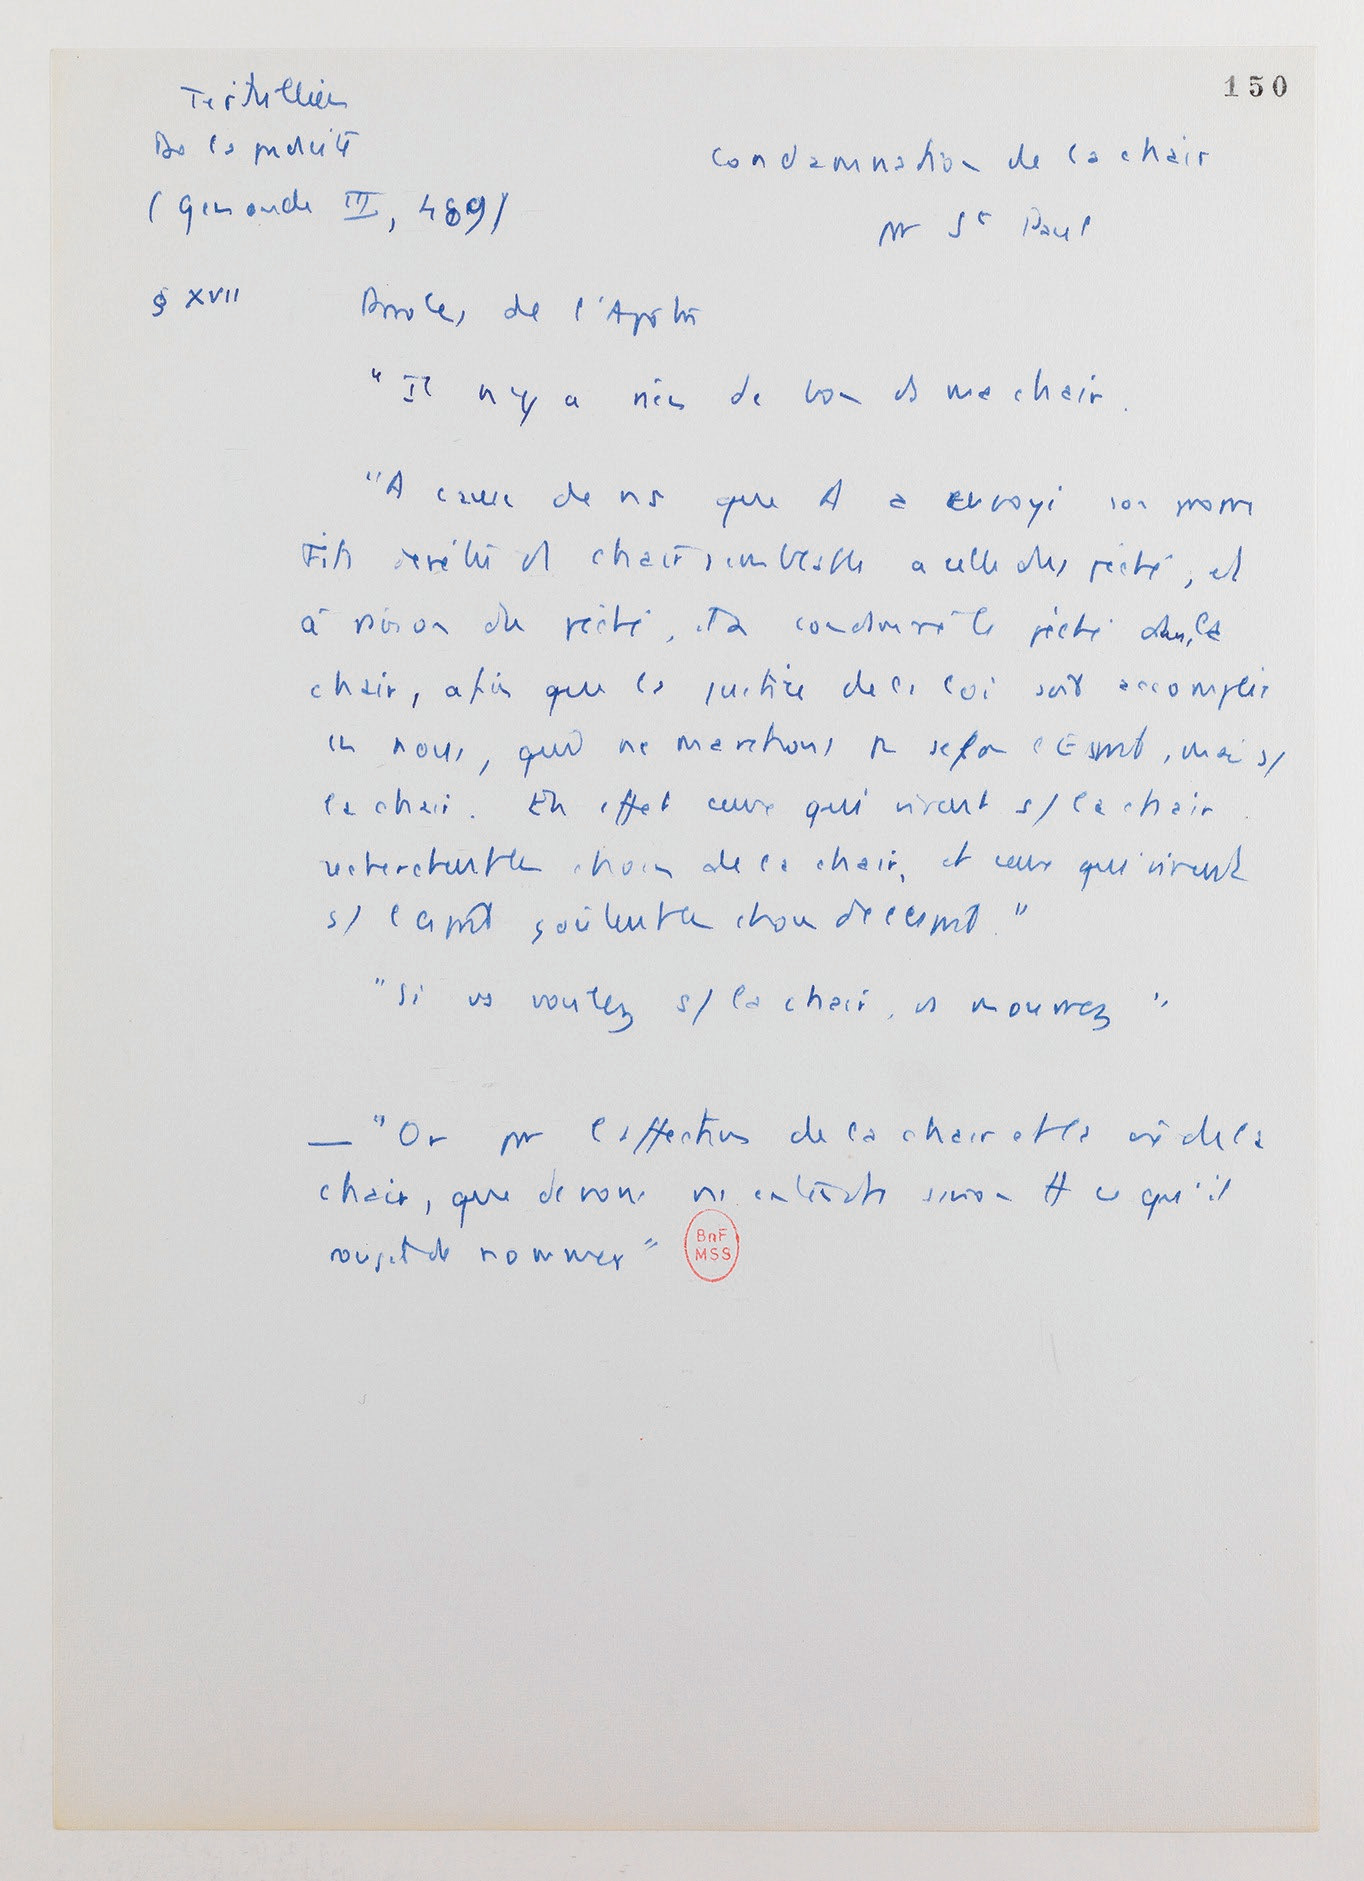 150
Tertullien
De la pudicité
(Genoude III, 489)
Condamnation de la chair
pr St Paul
§ XVII Paroles de l'Apôtre
"Il n'y a rien de bon ds ma chair.
"A cause de ns que A a envoyé son propre
Fils revêtu d chair semblable a celle du péché, et
à raison du péché, il a condamné le péché dans la
chair, afin que la justice de la loi soit accomplie
en nous, qui ne marchons pr selon l'Esprit, mais s/
la chair. En effet ceux qui vivent s/ la chair
recherchent les choses de la chair, et ceux qui vivent
s/ l'esprit goûtent les choses de l'esprit."
"Si vs voulez s/ la chair, vs mourrez"
— "Or pr l'affection de la chair et la vie de la
chair, que devons ns entendre sinon tt ce qu'il
rougit de nommer"
BnF
MSS